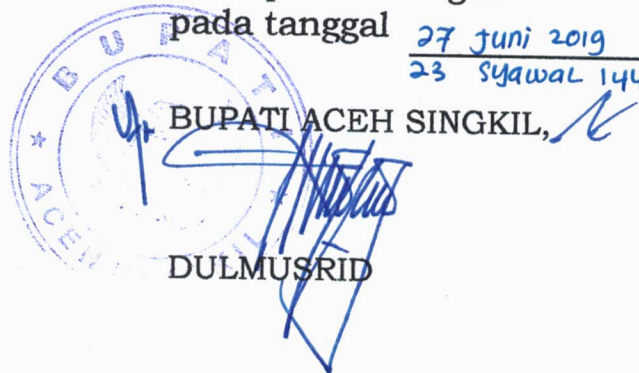 pada tanggal 27 Juni 2019
23 Syawal 144
BUPATI ACEH SINGKIL,
DULMUSRID
BUPAT
ACEH